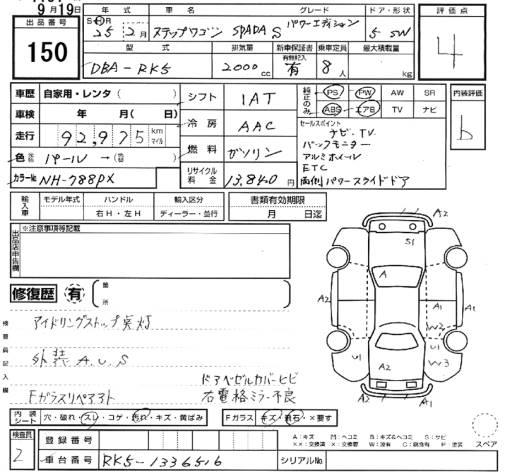 9月19日
出品番号
150
S H R
年 式
25 年 2 月
車 名
ステップワゴン SPADA S
グレード
パワーエディション
ドア・形状
5 SW
評価点
4
型 式
DBA-RK5
排気量
2000 cc
新車保証書
有無記入
有
乗車定員
8 人
最大積載量
kg
車歴 自家用・レンタ ( )
車検 年 月( 日)
走行 92,975 km マイル
色 パール → ( )
カラーNo NH-788PX
シフト 1AT
冷房 AAC
燃料 ガソリン
リサイクル料金 13,840 円
純正のみ PS PW AW SR
ABS エアB TV ナビ
セールスポイント
ナビ・TV
バックモニター
アルミホイール
ETC
両側パワースライドドア
内装評価
b
輸入車 モデル年式 ハンドル 輸入区分
右H・左H ディーラー・並行
書類有効期限
月 日迄
出品店申告欄
※注意事項等記載
修復歴 有 箇所
検査員記入欄
アイドリングストップ点灯
外装 A.U.S
Fガラスリペアアト
ドアベゼルカバーヒビ
右電格ミラー不良
A2
S1
A
A1
A2
A1
A2
W2
U1
U1
W3
A2
A2
スペア
内装シート 穴・破れ・スレ・コゲ・汚れ・キズ・黄ばみ
Fガラス キズ・飛石・×要す
検査員
2
登録番号
車台番号 RK5-1336516
シリアルNo
A:キズ M:ヘコミ B:キズ&ヘコミ S:サビ
××:交換済 ×:交換要 W:波有 C:腐食有 P:塗装